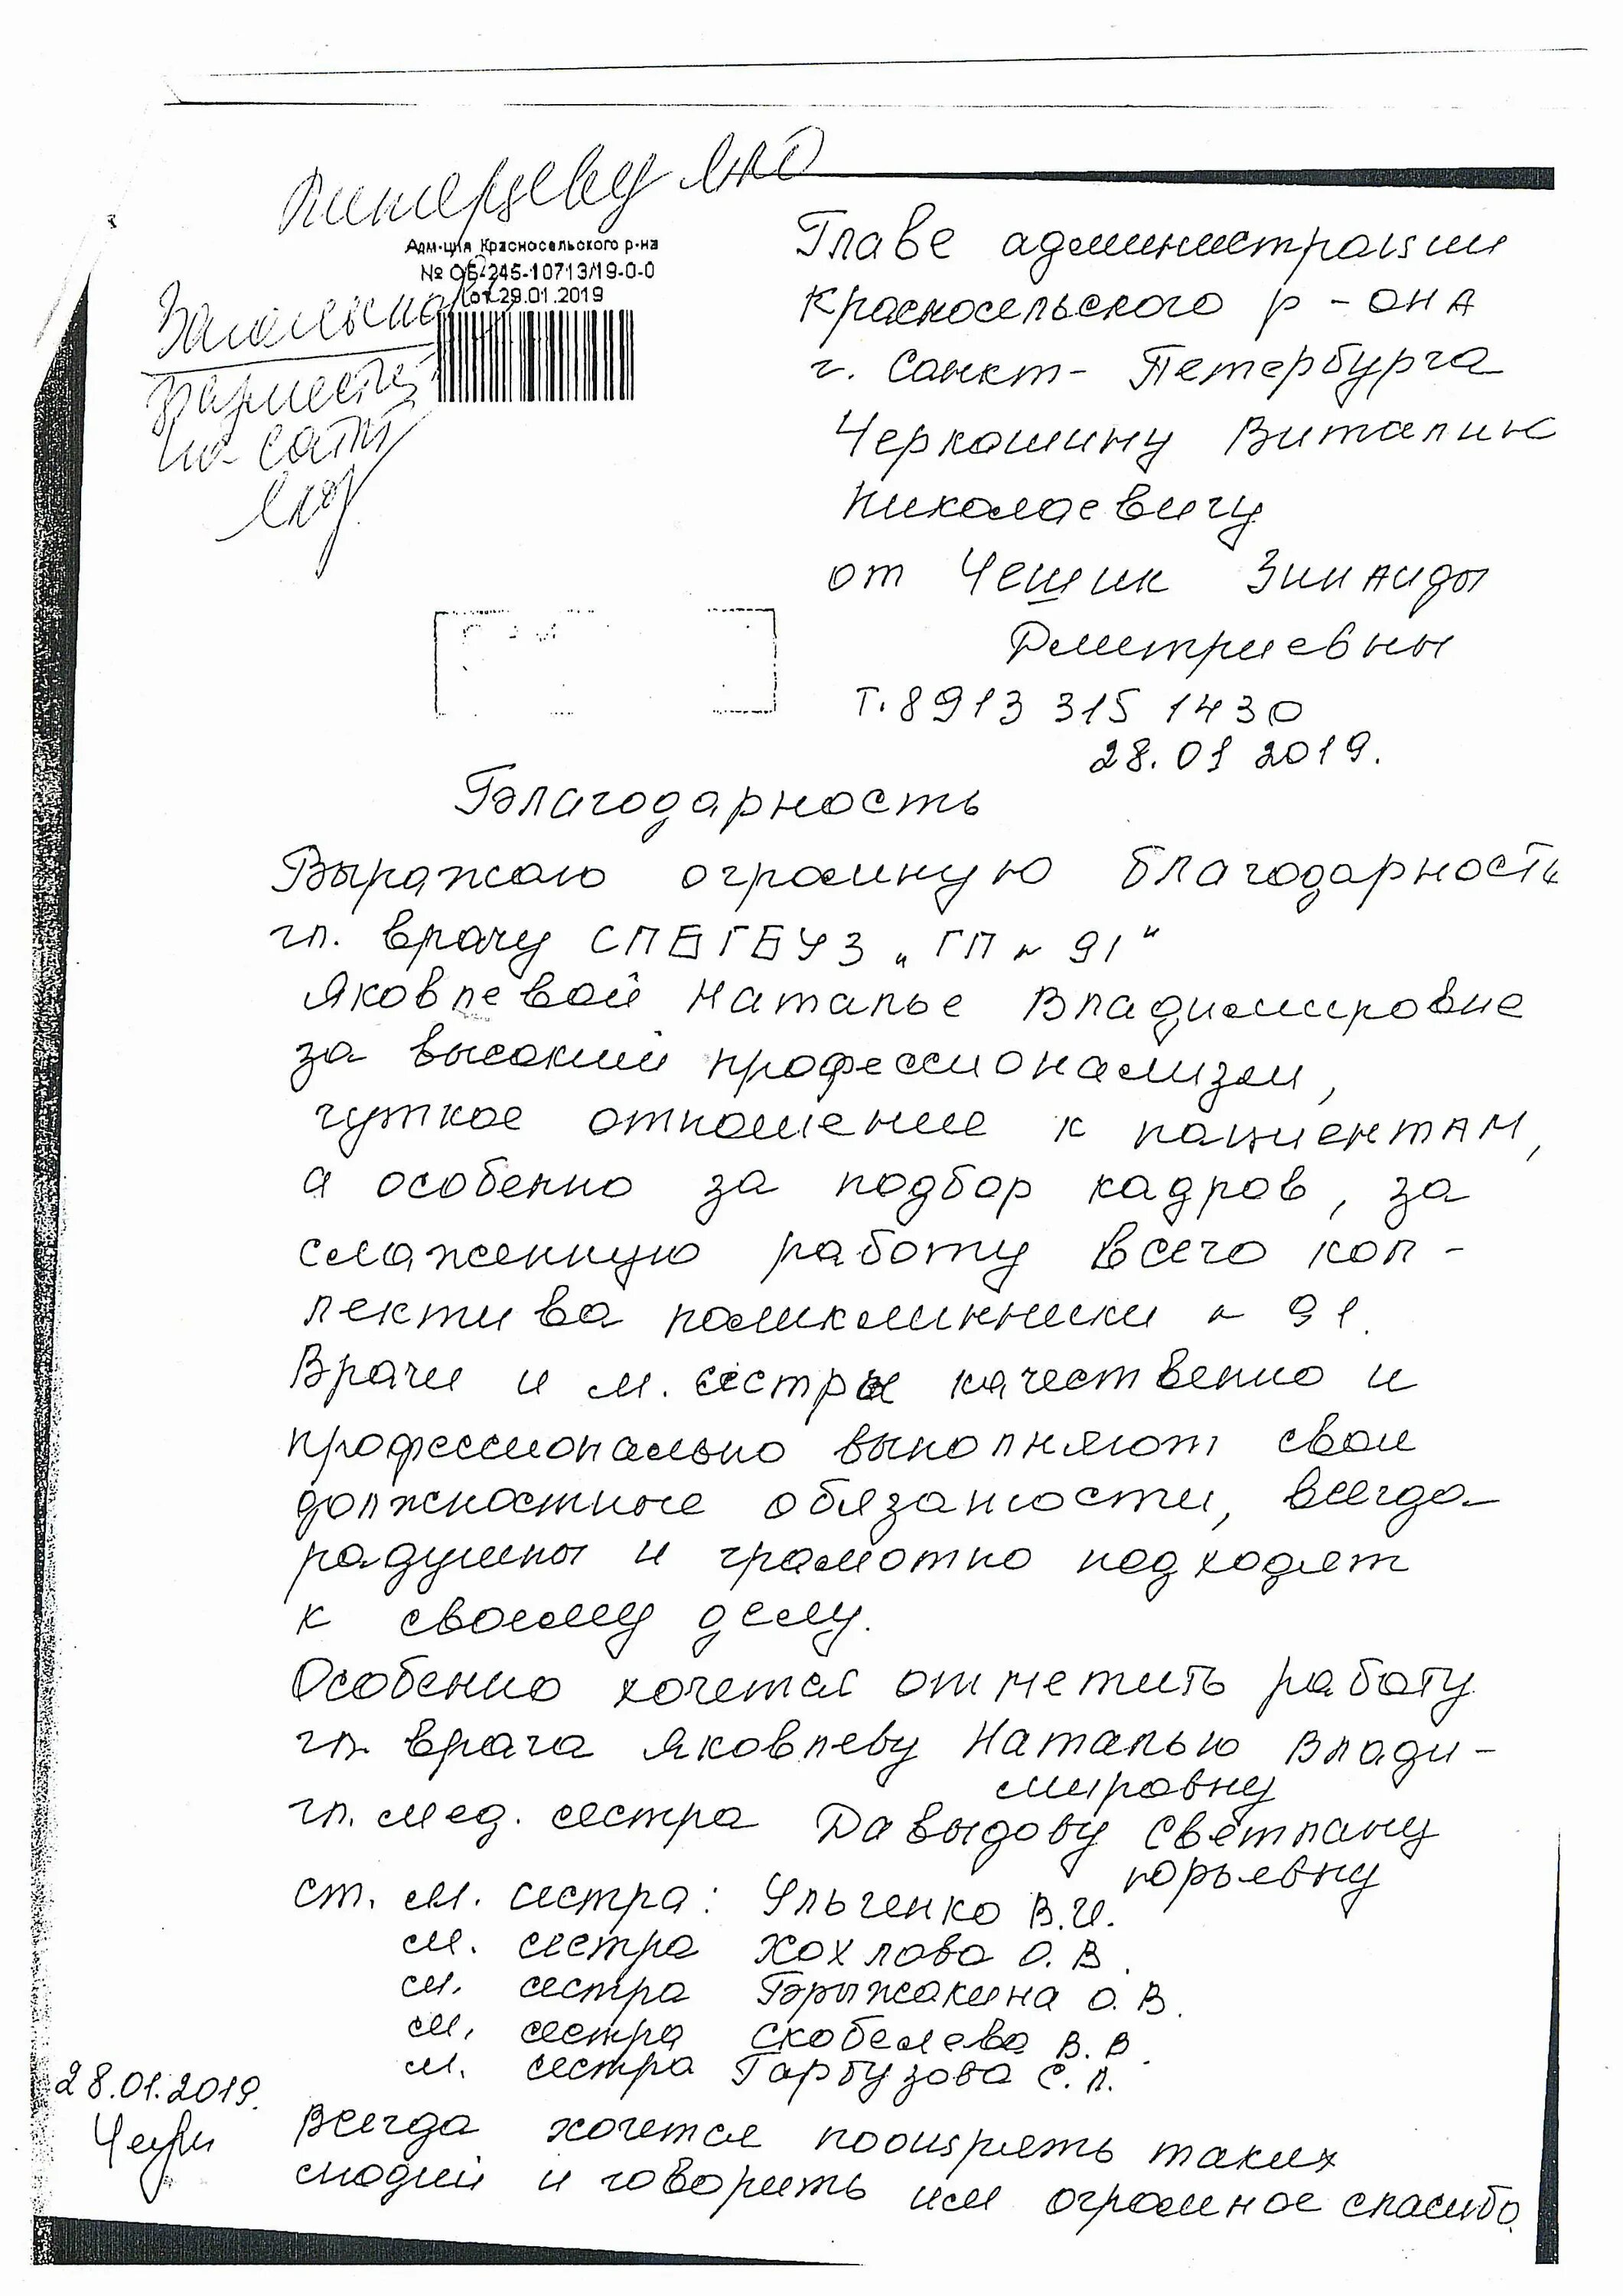 Адм-ция Красносельского р-на
№ ОБ-245-10713/19-0-0
от 29.01.2019
на сайт
Главе администрации
Красносельского р-она
г. Санкт-Петербурга
Черкашину Виталию
Николаевичу
от Чещик Зинаиды
Дмитриевны
Т. 8 913 315 1430
28.01 2019.
Благодарность
Выражаю огромную благодарность
гл. врачу СПБГБУЗ „ГП N 91"
Яковлевой Наталье Владимировне
за высокий профессионализм,
чуткое отношение к пациентам,
а особенно за подбор кадров, за
слаженную работу всего кол-
лектива поликлинники N 91.
Врачи и м. сестры качественно и
профессионально выполняют свои
должностные обязаности, всегда
радушны и грамотно подходят
к своему делу.
Особенно хочется отметить работу
гл. врача Яковлеву Наталью Влади-
мировну
гл. мед. сестра Давыдову Светлану
Юрьевну
ст. м. сестра: Ульченко В.И.
м. сестра Хохлова О.В.
м. сестра Брыжакина О.В.
м. сестра Скобелева В.В.
м. сестра Гарбузова С.Л.
28.01.2019.
Всегда хочется поощрять таких
людей и говорить им огромное спасибо.